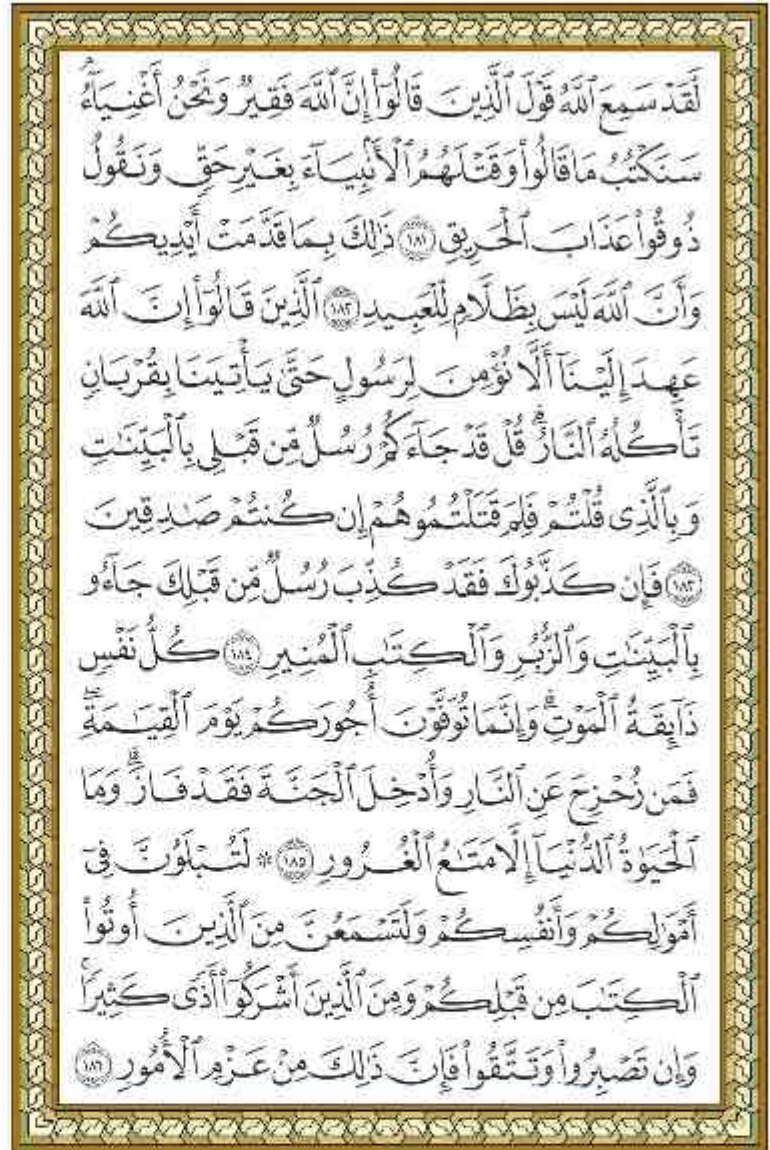 لَّقَدْ سَمِعَ ٱللَّهُ قَوْلَ ٱلَّذِينَ قَالُوٓا۟ إِنَّ ٱللَّهَ فَقِيرٌ وَنَحْنُ أَغْنِيَآءُ ۘ
سَنَكْتُبُ مَا قَالُوا۟ وَقَتْلَهُمُ ٱلْأَنۢبِيَآءَ بِغَيْرِ حَقٍّ وَنَقُولُ
ذُوقُوا۟ عَذَابَ ٱلْحَرِيقِ ١٨١ ذَٰلِكَ بِمَا قَدَّمَتْ أَيْدِيكُمْ
وَأَنَّ ٱللَّهَ لَيْسَ بِظَلَّامٍ لِّلْعَبِيدِ ١٨٢ ٱلَّذِينَ قَالُوٓا۟ إِنَّ ٱللَّهَ
عَهِدَ إِلَيْنَآ أَلَّا نُؤْمِنَ لِرَسُولٍ حَتَّىٰ يَأْتِيَنَا بِقُرْبَانٍ
تَأْكُلُهُ ٱلنَّارُ ۗ قُلْ قَدْ جَآءَكُمْ رُسُلٌ مِّن قَبْلِى بِٱلْبَيِّنَٰتِ
وَبِٱلَّذِى قُلْتُمْ فَلِمَ قَتَلْتُمُوهُمْ إِن كُنتُمْ صَٰدِقِينَ
١٨٣ فَإِن كَذَّبُوكَ فَقَدْ كُذِّبَ رُسُلٌ مِّن قَبْلِكَ جَآءُو
بِٱلْبَيِّنَٰتِ وَٱلزُّبُرِ وَٱلْكِتَٰبِ ٱلْمُنِيرِ ١٨٤ كُلُّ نَفْسٍ
ذَآئِقَةُ ٱلْمَوْتِ ۗ وَإِنَّمَا تُوَفَّوْنَ أُجُورَكُمْ يَوْمَ ٱلْقِيَٰمَةِ ۖ
فَمَن زُحْزِحَ عَنِ ٱلنَّارِ وَأُدْخِلَ ٱلْجَنَّةَ فَقَدْ فَازَ ۗ وَمَا
ٱلْحَيَوٰةُ ٱلدُّنْيَآ إِلَّا مَتَٰعُ ٱلْغُرُورِ ١٨٥ * لَتُبْلَوُنَّ فِىٓ
أَمْوَٰلِكُمْ وَأَنفُسِكُمْ وَلَتَسْمَعُنَّ مِنَ ٱلَّذِينَ أُوتُوا۟
ٱلْكِتَٰبَ مِن قَبْلِكُمْ وَمِنَ ٱلَّذِينَ أَشْرَكُوٓا۟ أَذًى كَثِيرًا ۚ
وَإِن تَصْبِرُوا۟ وَتَتَّقُوا۟ فَإِنَّ ذَٰلِكَ مِنْ عَزْمِ ٱلْأُمُورِ ١٨٦